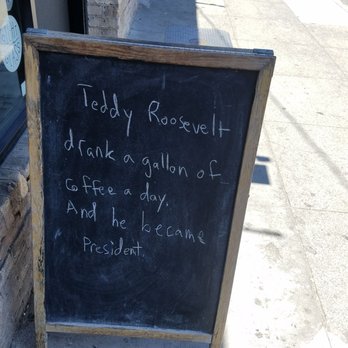 Teddy Roosevelt
drank a gallon of
coffee a day.
And he became
President.